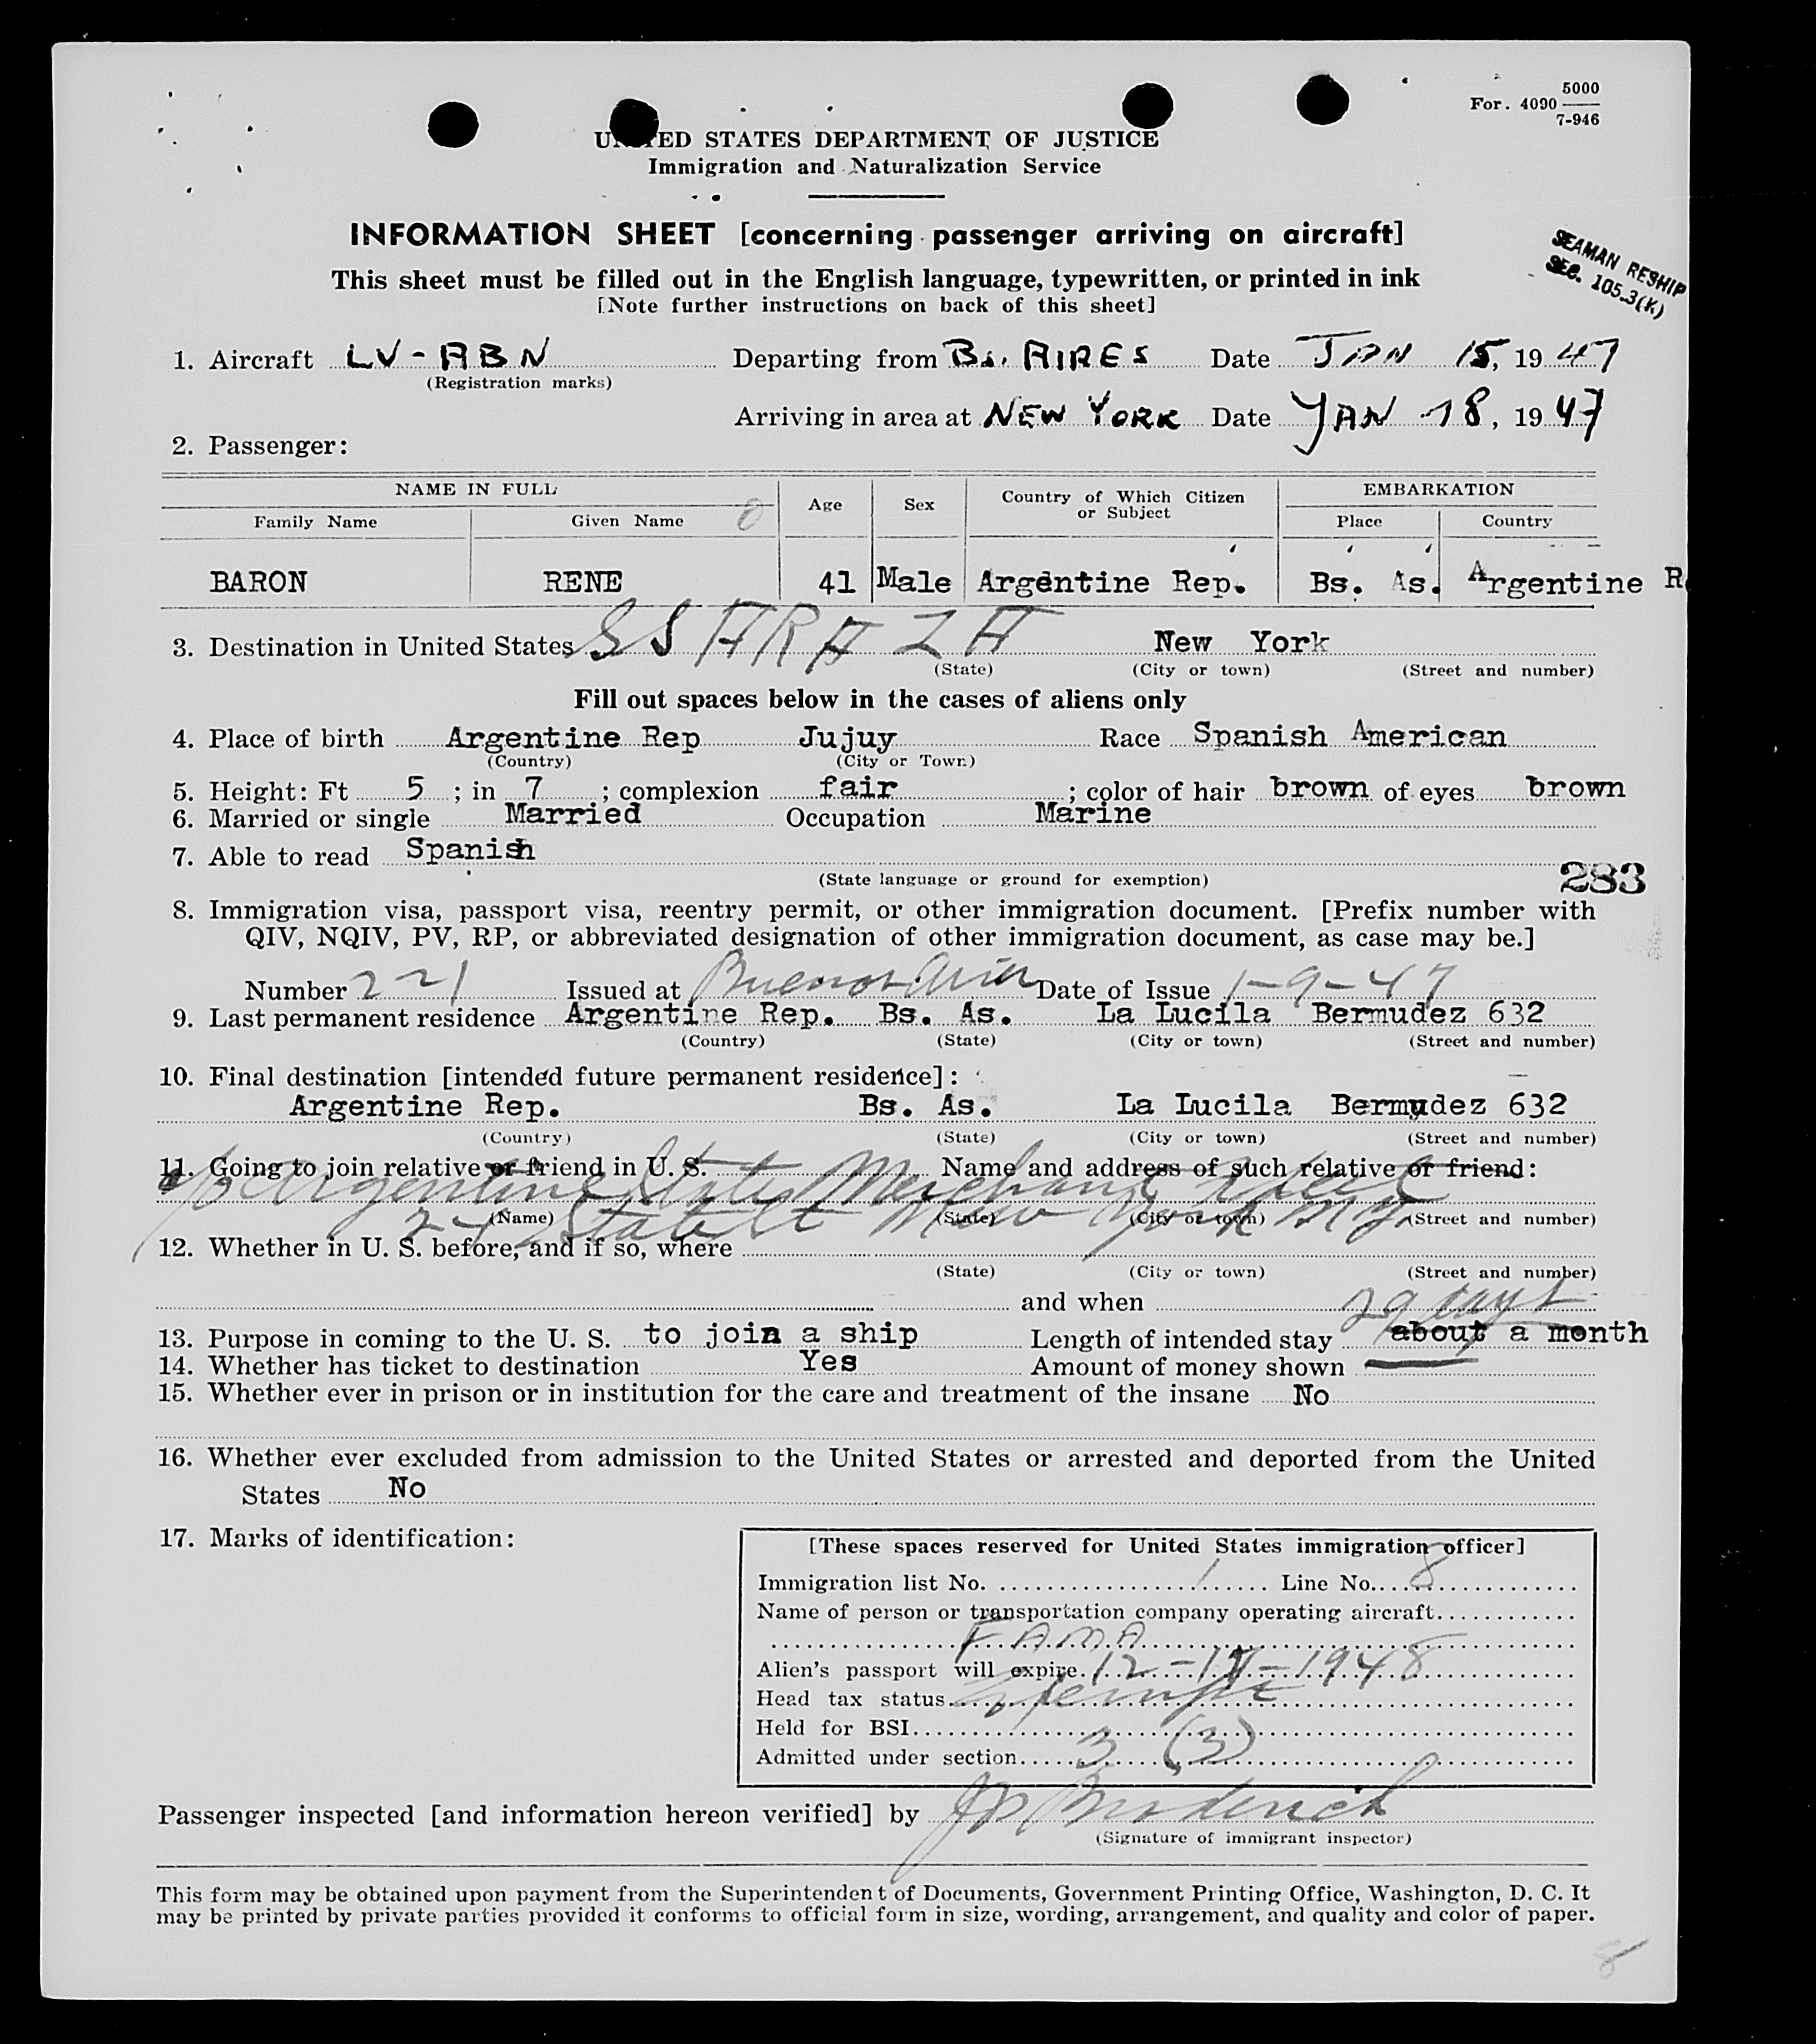 5000
For. 4090
7-946
UNITED STATES DEPARTMENT OF JUSTICE
Immigration and Naturalization Service
INFORMATION SHEET [concerning passenger arriving on aircraft]
This sheet must be filled out in the English language, typewritten, or printed in ink
[Note further instructions on back of this sheet]
SEAMAN RESHIP
SEC. 105.3(K)
1. Aircraft LV-ABN Departing from Bs. AIRES Date JAN 15, 1947
(Registration marks)
Arriving in area at NEW YORK Date JAN 18, 1947
2. Passenger:
NAME IN FULL Age Sex Country of Which Citizen or Subject EMBARKATION
Family Name Given Name Place Country
BARON RENE 41 Male Argentine Rep. Bs. As. Argentine R
3. Destination in United States SS ARAZA New York
(State) (City or town) (Street and number)
Fill out spaces below in the cases of aliens only
4. Place of birth Argentine Rep Jujuy Race Spanish American
(Country) (City or Town)
5. Height: Ft 5 ; in 7 ; complexion fair ; color of hair brown of eyes brown
6. Married or single Married Occupation Marine
7. Able to read Spanish
(State language or ground for exemption)
283
8. Immigration visa, passport visa, reentry permit, or other immigration document. [Prefix number with
QIV, NQIV, PV, RP, or abbreviated designation of other immigration document, as case may be.]
Number 221 Issued at Buenos Aires Date of Issue 1-9-47
9. Last permanent residence Argentine Rep. Bs. As. La Lucila Bermudez 632
(Country) (State) (City or town) (Street and number)
10. Final destination [intended future permanent residence]:
Argentine Rep. Bs. As. La Lucila Bermudez 632
(Country) (State) (City or town) (Street and number)
11. Going to join relative or friend in U. S. Name and address of such relative or friend:
c/o Argentine State Merchant Fleet
(Name) (State) (City or town) (Street and number)
24 State St New York NY
12. Whether in U. S. before, and if so, where
(State) (City or town) (Street and number)
and when
29 days
13. Purpose in coming to the U. S. to join a ship Length of intended stay about a month
14. Whether has ticket to destination Yes Amount of money shown
15. Whether ever in prison or in institution for the care and treatment of the insane No
16. Whether ever excluded from admission to the United States or arrested and deported from the United
States No
17. Marks of identification:
[These spaces reserved for United States immigration officer]
Immigration list No. 1 Line No. 8
Name of person or transportation company operating aircraft
FAMA
Alien's passport will expire 12-17-1948
Head tax status Exempt
Held for BSI
Admitted under section 3 (3)
Passenger inspected [and information hereon verified] by
(Signature of immigrant inspector)
This form may be obtained upon payment from the Superintendent of Documents, Government Printing Office, Washington, D. C. It
may be printed by private parties provided it conforms to official form in size, wording, arrangement, and quality and color of paper.
8